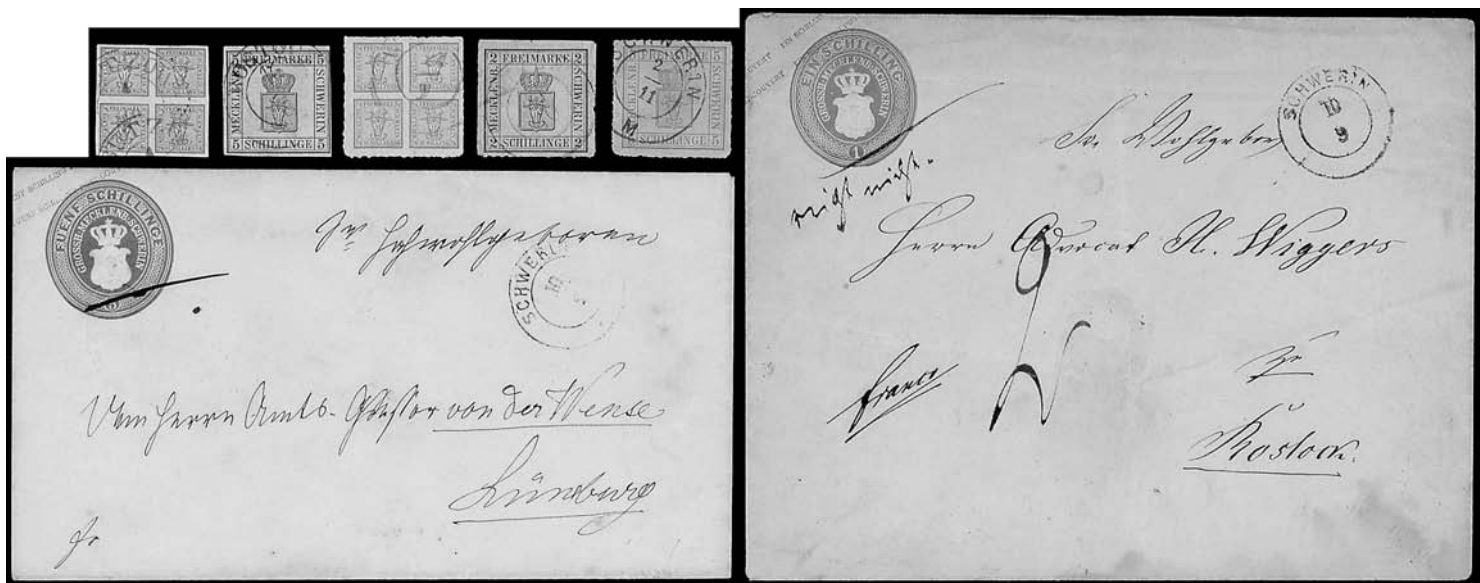 5 FREIMARKE 5
MECKLENB. SCHWERIN
5 SCHILLINGE 5
2 FREIMARKE 2
MECKLENB. SCHWERIN
2 SCHILLINGE 2
SCHWERIN
2
11
FUENF SCHILLINGE
GROSSH. MECKLENB. SCHWERIN
5
SCHWERIN
10
Hochwohlgeboren
dem Herrn Amts-Assessor von der Wense
Lüneburg
fr
EIN SCHILLING
GROSSH. MECKLENB. SCHWERIN
1
SCHWERIN
10
9
Sr. Wohlgeboren
reicht nicht.
Herrn Advocat M. Wiggers
franco
zu
Rostock.